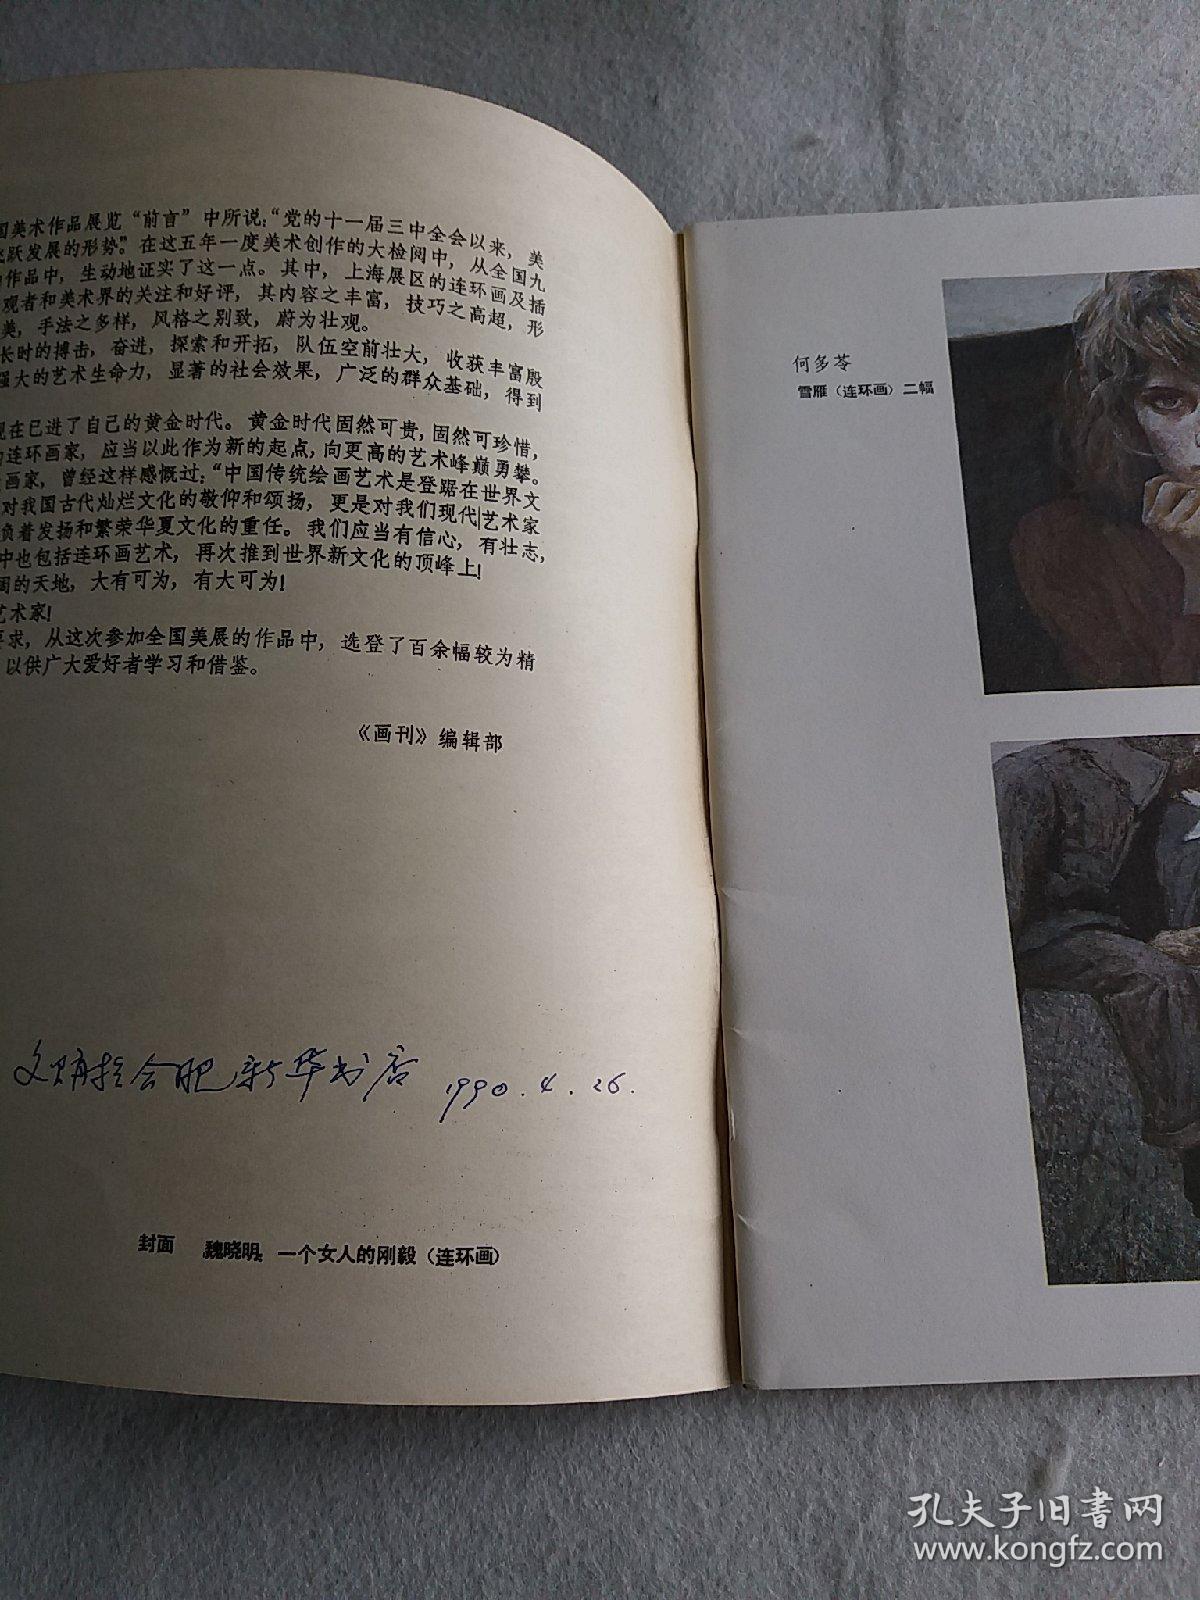 国美术作品展览“前言”中所说：“党的十一届三中全会以来，美
飞跃发展的形势。”在这五年一度美术创作的大检阅中，从全国九
作品中，生动地证实了这一点。其中，上海展区的连环画及插
观者和美术界的关注和好评，其内容之丰富，技巧之高超，形
美，手法之多样，风格之别致，蔚为壮观。
长时的搏击，奋进，探索和开拓，队伍空前壮大，收获丰富殷
强大的艺术生命力，显著的社会效果，广泛的群众基础，得到
现在已进了自己的黄金时代。黄金时代固然可贵，固然可珍惜，
连环画家，应当以此作为新的起点，向更高的艺术峰巅勇攀。
画家，曾经这样感慨过：“中国传统绘画艺术是登踞在世界文
对我国古代灿烂文化的敬仰和颂扬，更是对我们现代艺术家
负着发扬和繁荣华夏文化的重任。我们应当有信心，有壮志，
中也包括连环画艺术，再次推到世界新文化的顶峰上！
阔的天地，大有可为，有大可为！
艺术家！
要求，从这次参加全国美展的作品中，选登了百余幅较为精
以供广大爱好者学习和借鉴。
《画刊》编辑部
合肥新华书店 1990.4.26.
封面 魏晓明：一个女人的刚毅（连环画）
何多苓
雪雁（连环画）二幅
孔夫子旧书网
www.kongfz.com